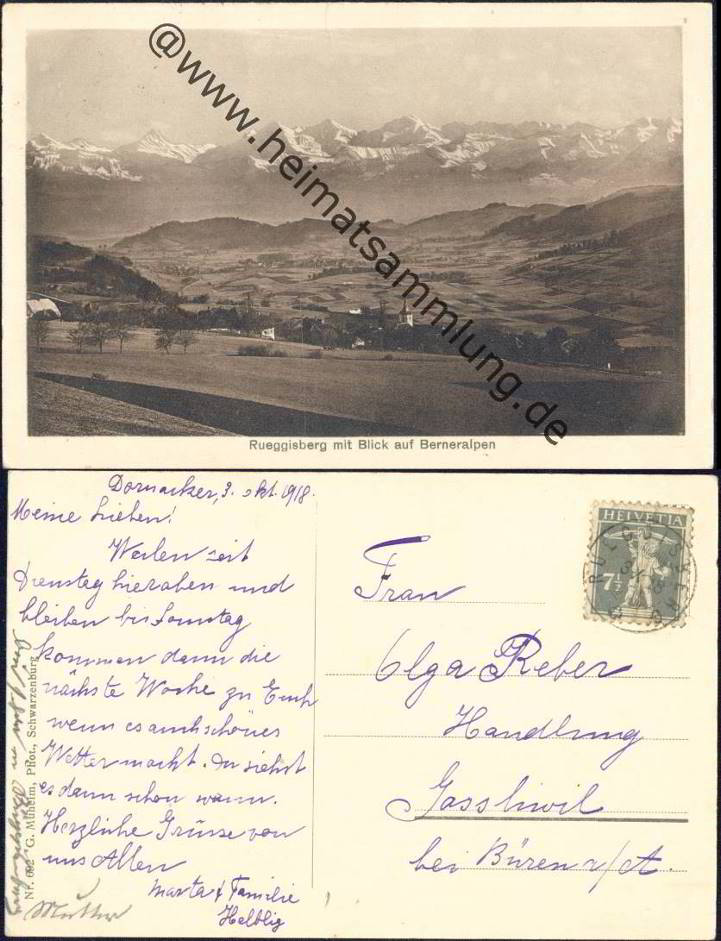 @www.heimatsammlung.de
Rueggisberg mit Blick auf Berneralpen
Dornacker, 3. Okt. 1918.
Meine Lieben!
Weilen seit
Dienstag hieroben und
bleiben bis Samstag
kommen dann die
nächste Woche zu Euch
wenn es auch schönes
Wetter macht. Du siehst
es dann schon wann.
Herzliche Grüsse von
uns Allen
Marta & Familie
Helblig
Mutter
G. Mülheim, Phot., Schwarzenburg
HELVETIA
7½
Frau
Olga Reber
Handlung
Gossliwil
bei Büren a/A.